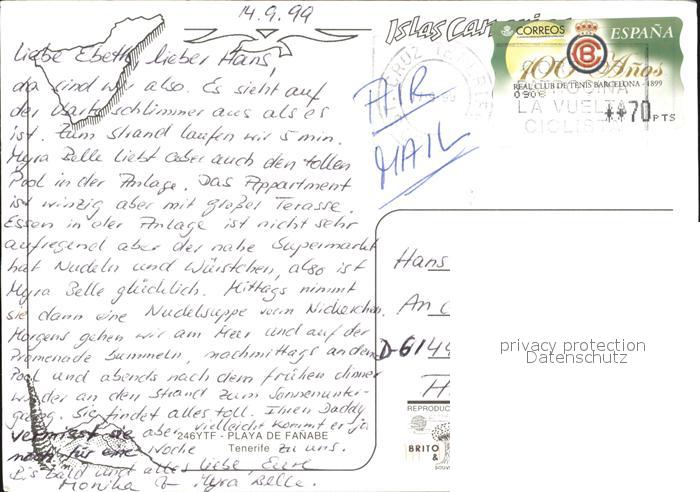 14.9.99
Liebe Ebeth, lieber Hans,
da sind wir also. Es sieht auf
der Karte schlimmer aus als es
ist. Zum Strand laufen wir 5 min.
Myra Belle liebt aber auch den tollen
Pool in der Anlage. Das Appartment
ist winzig aber mit großer Terasse.
Essen in der Anlage ist nicht sehr
aufregend aber der nahe Supermarkt
hat Nudeln und Würstchen, also ist
Myra Belle glücklich. Mittags nimmt
sie dann eine Nudelsuppe vorm Nickerchen.
Morgens gehen wir am Meer und auf der
Promenade bummeln, nachmittags an den
Pool und abends nach dem frühen dinner
wieder an den Strand zum Sonnenunter-
gang. Sie findet alles toll. Ihren Daddy
vermisst sie aber vielleicht kommt er ja
noch für eine Woche zu uns.
Bis bald und alles liebe, Eure
Monika & Myra Belle.
246YTF - PLAYA DE FAÑABE
Tenerife
Islas
AIR
MAIL
CORREOS
ESPAÑA
100 Años
REAL CLUB DE TENIS BARCELONA - 1899
LA VUELTA
CICLISTA
**70 PTS
Hans
An
D-6144
H
privacy protection
Datenschutz
REPRODUC
BRITO
&
SOUV